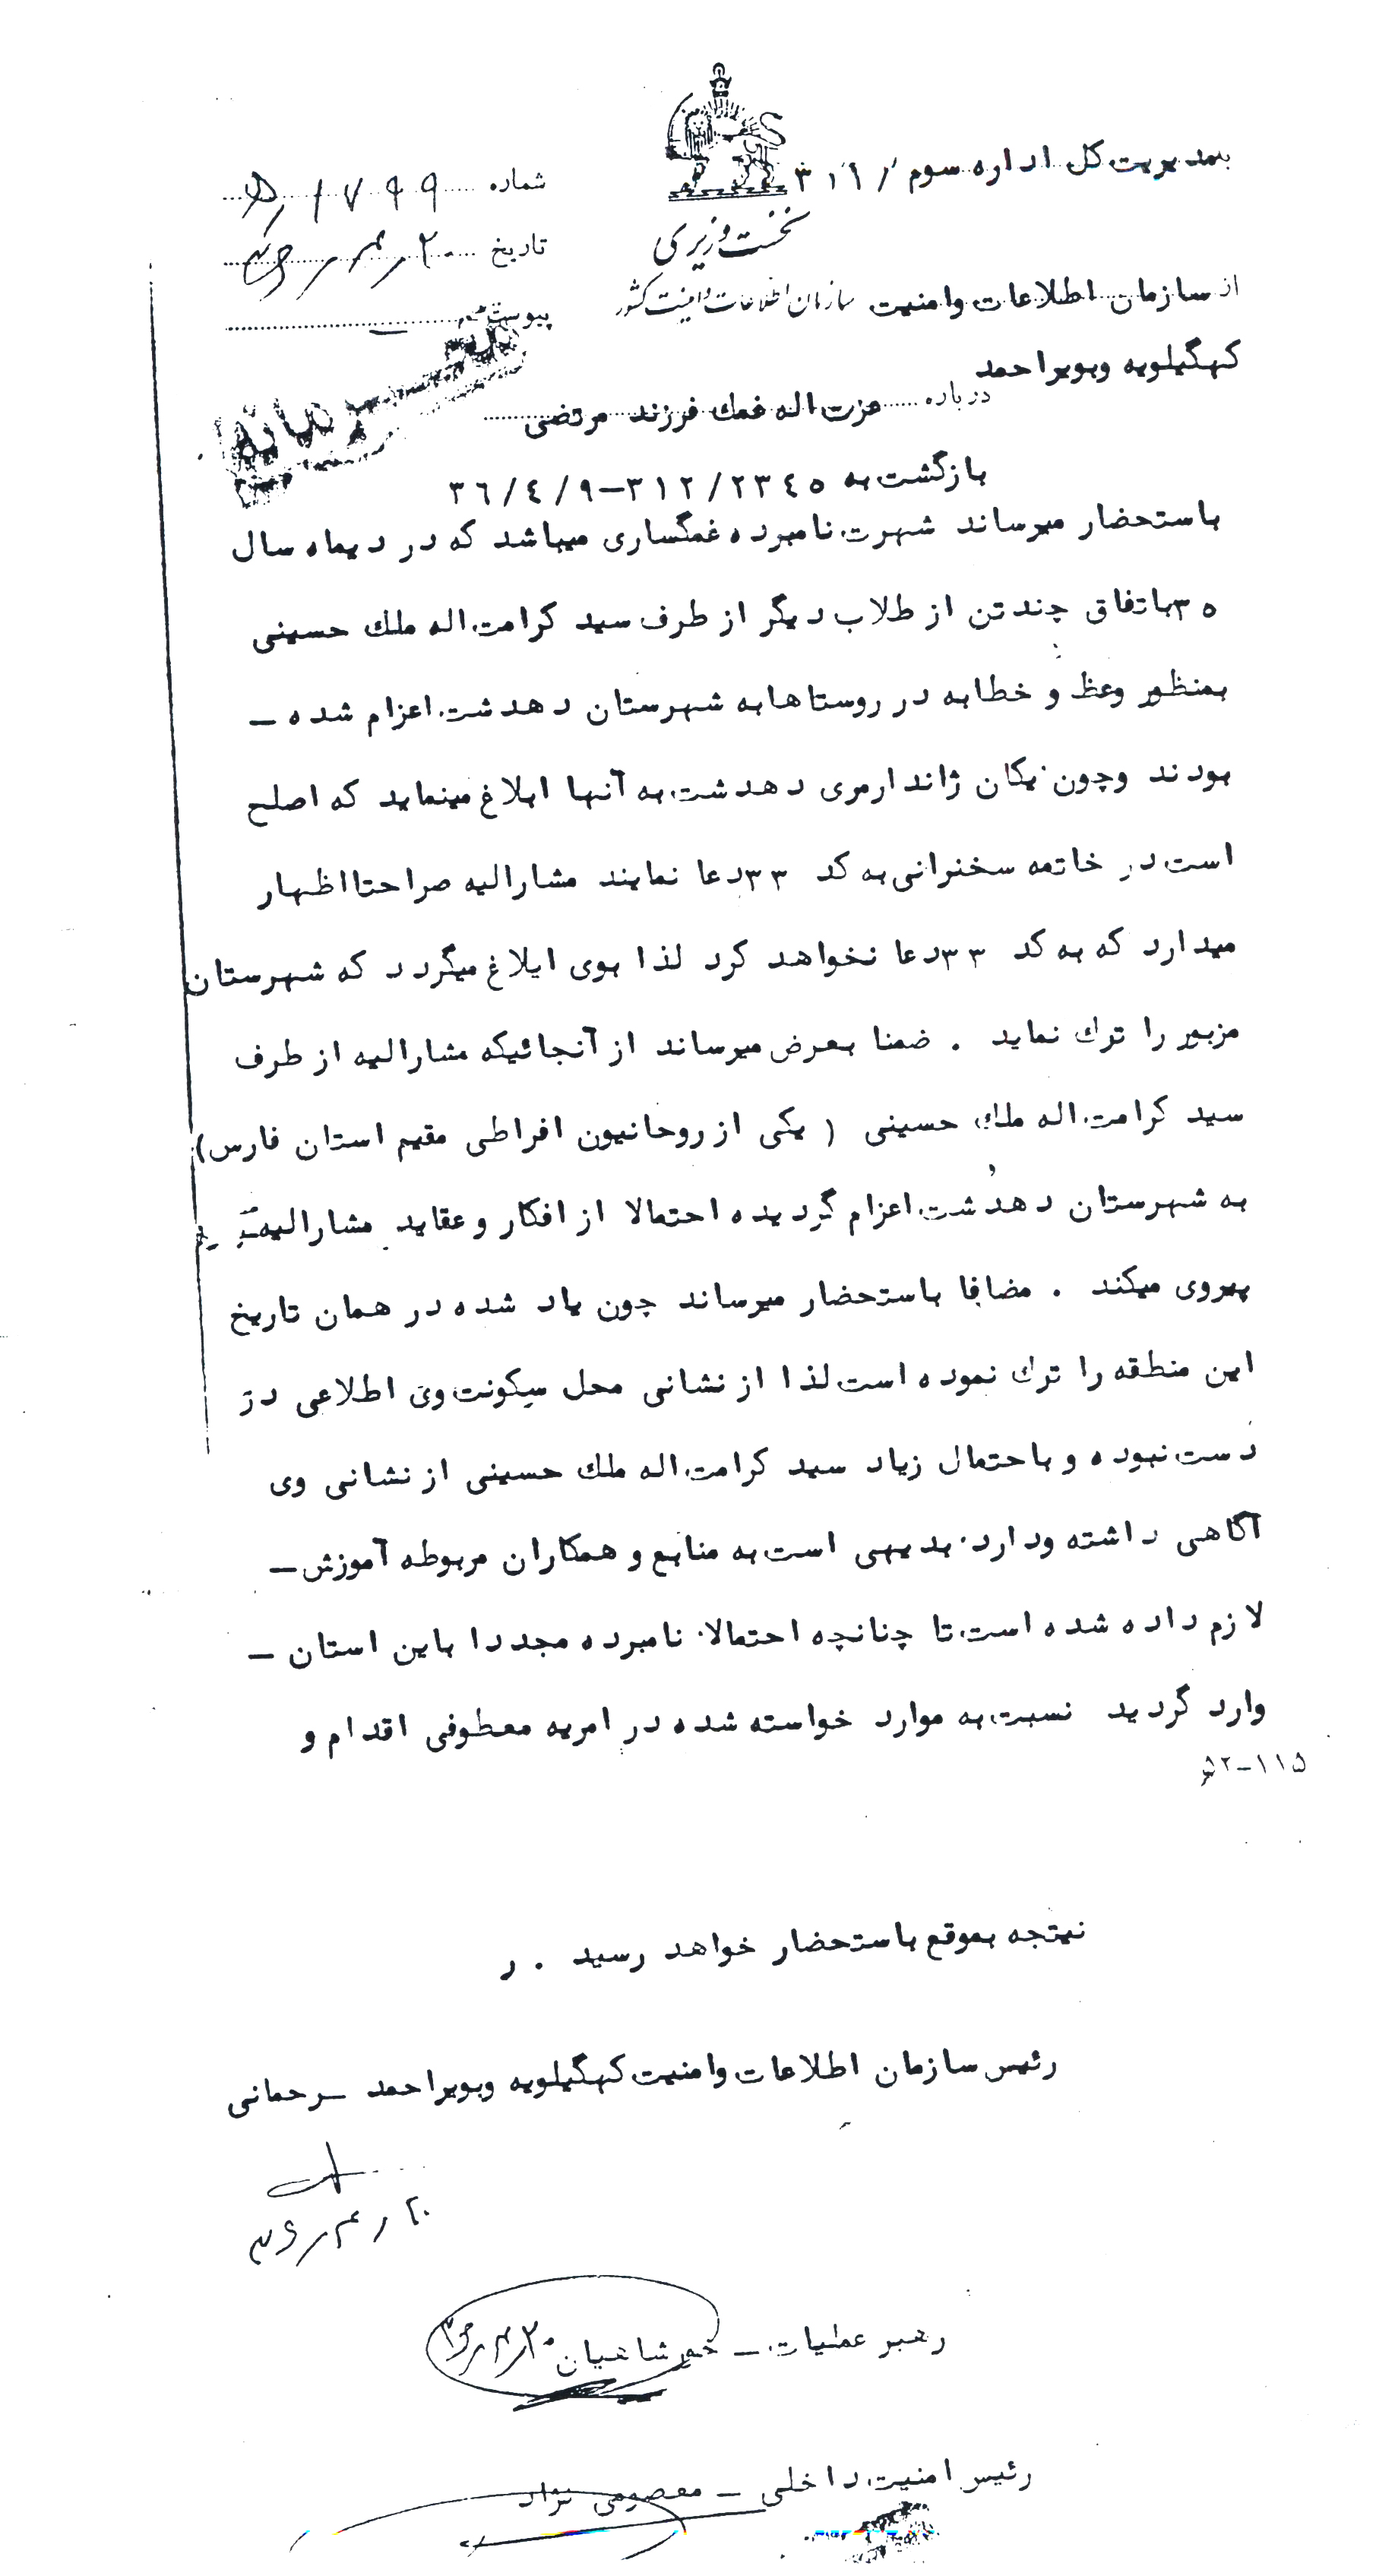 بمدیریت کل اداره سوم / ۳۱۱
شماره ۱۷۹۹/ه
نخست وزیری
تاریخ ۲۰/۴/۳۶
از سازمان اطلاعات وامنیت سازمان اطلاعات و امنیت کشور
پیوست
کهگیلویه وبویراحمد
درباره عزت اله غمك فرزند مرتضی
بازگشت به ۳۱۲/۲۳٤٥-۳٦/٤/۹
باستحضار میرساند شهرت نامبرده غمگساری میباشد که در دیماه سال
۳٥ باتفاق چندتن از طلاب دیگر از طرف سید کرامت اله ملك حسینی
بمنظور وعظ و خطابه در روستاهابه شهرستان دهدشت اعزام شده –
بودند وچون یکان ژاندارمری دهدشت به آنها ابلاغ مینماید که اصلح
است در خاتمه سخنرانی به کد ۳۳ دعا نمایند مشارالیه صراحتا اظهار
میدارد که به کد ۳۳ دعا نخواهد کرد لذا بوی ابلاغ میگردد که شهرستان
مزبور را ترك نماید . ضمنا بعرض میرساند از آنجائیکه مشارالیه از طرف
سید کرامت اله ملك حسینی ( یکی از روحانیون افراطی مقیم استان فارس)
به شهرستان دهدشت اعزام گردیده احتمالا از افکار و عقاید مشارالیه
پیروی میکند . مضافا باستحضار میرساند چون یاد شده در همان تاریخ
این منطقه را ترك نموده است لذا از نشانی محل سکونت وی اطلاعی در
دست نبوده و باحتمال زیاد سید کرامت اله ملك حسینی از نشانی وی
آگاهی داشته ودارد. بدیهی است به منابع و همکاران مربوطه آموزش –
لازم داده شده است تا چنانچه احتمالا نامبرده مجددا باین استان –
وارد گردید نسبت به موارد خواسته شده در امریه معطوفی اقدام و
۱۱۵-۵۲
نیتجه بموقع باستحضار خواهد رسید . ر
رئیس سازمان اطلاعات وامنیت کهگیلویه وبویراحمد – رحمانی
۲۰/۴/۳۶
رهبر عملیات – خورشاهیان ۲۰/۴/۳۶
رئیس امنیت داخلی – معصومی نژاد